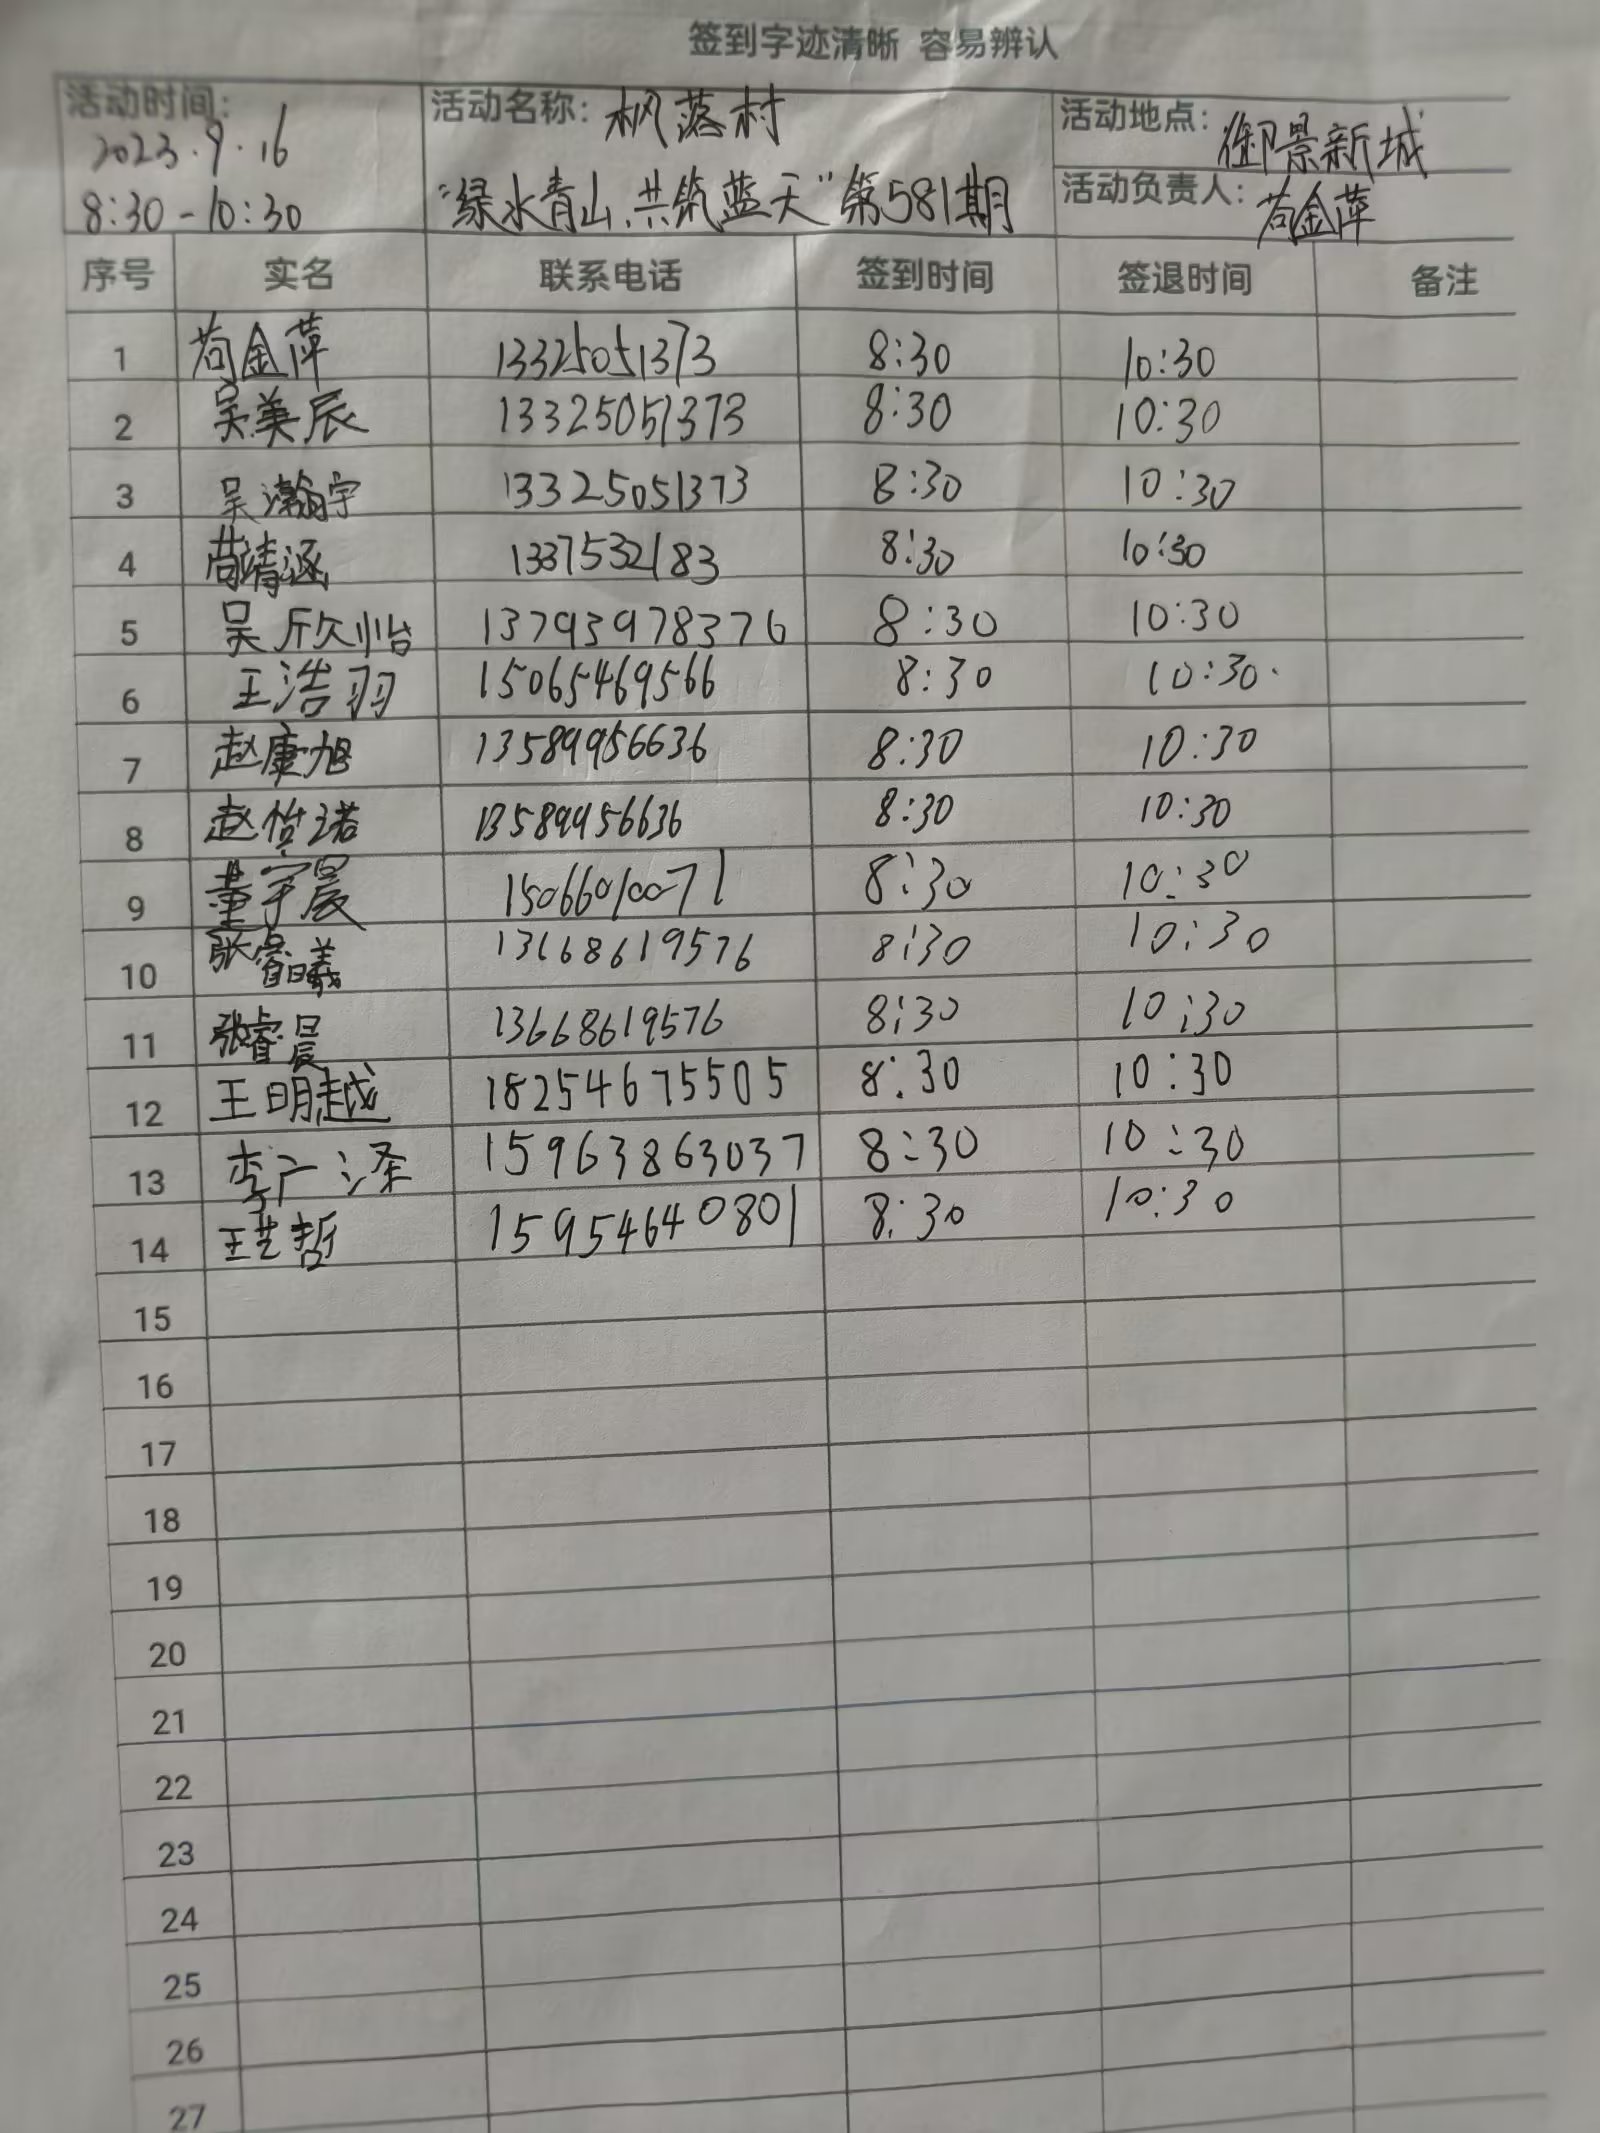 签到字迹清晰 容易辨认
活动时间: 2023.9.16 8:30-10:30
活动名称: 枫落村 "绿水青山.共筑蓝天"第581期
活动地点: 御景新城
活动负责人: 苟金萍
序号 实名 联系电话 签到时间 签退时间 备注
1 苟金萍 13325051373 8:30 10:30
2 吴美辰 13325051373 8:30 10:30
3 吴瀚宇 13325051373 8:30 10:30
4 苟靖涵 1337532183 8:30 10:30
5 吴欣怡 13793978376 8:30 10:30
6 王浩羽 15065469566 8:30 10:30.
7 赵康旭 13589956636 8:30 10:30
8 赵怡诺 13589956636 8:30 10:30
9 董宇宸 15066010071 8:30 10:30
10 张睿曦 13668619576 8:30 10:30
11 张睿晨 13668619576 8:30 10:30
12 王明越 18254675505 8:30 10:30
13 李广泽 15963863037 8:30 10:30
14 王艺哲 15954640801 8:30 10:30
15
16
17
18
19
20
21
22
23
24
25
26
27